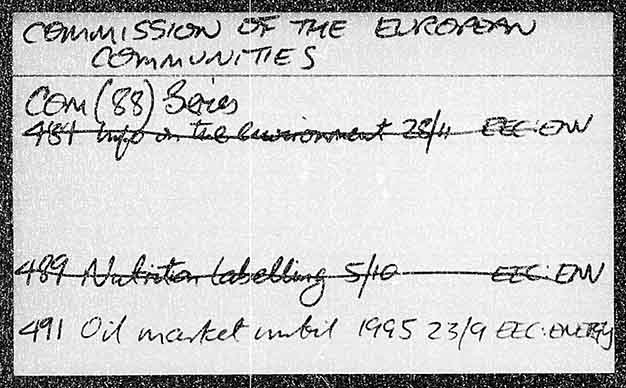 COMMISSION OF THE EUROPEAN
COMMUNITIES
COM (88) Series
484 Info on the Environment 28/11 EEC:ENV
489 Nutrition labelling 5/10 EEC:ENV
491 Oil market until 1995 23/9 EEC:ENERGY